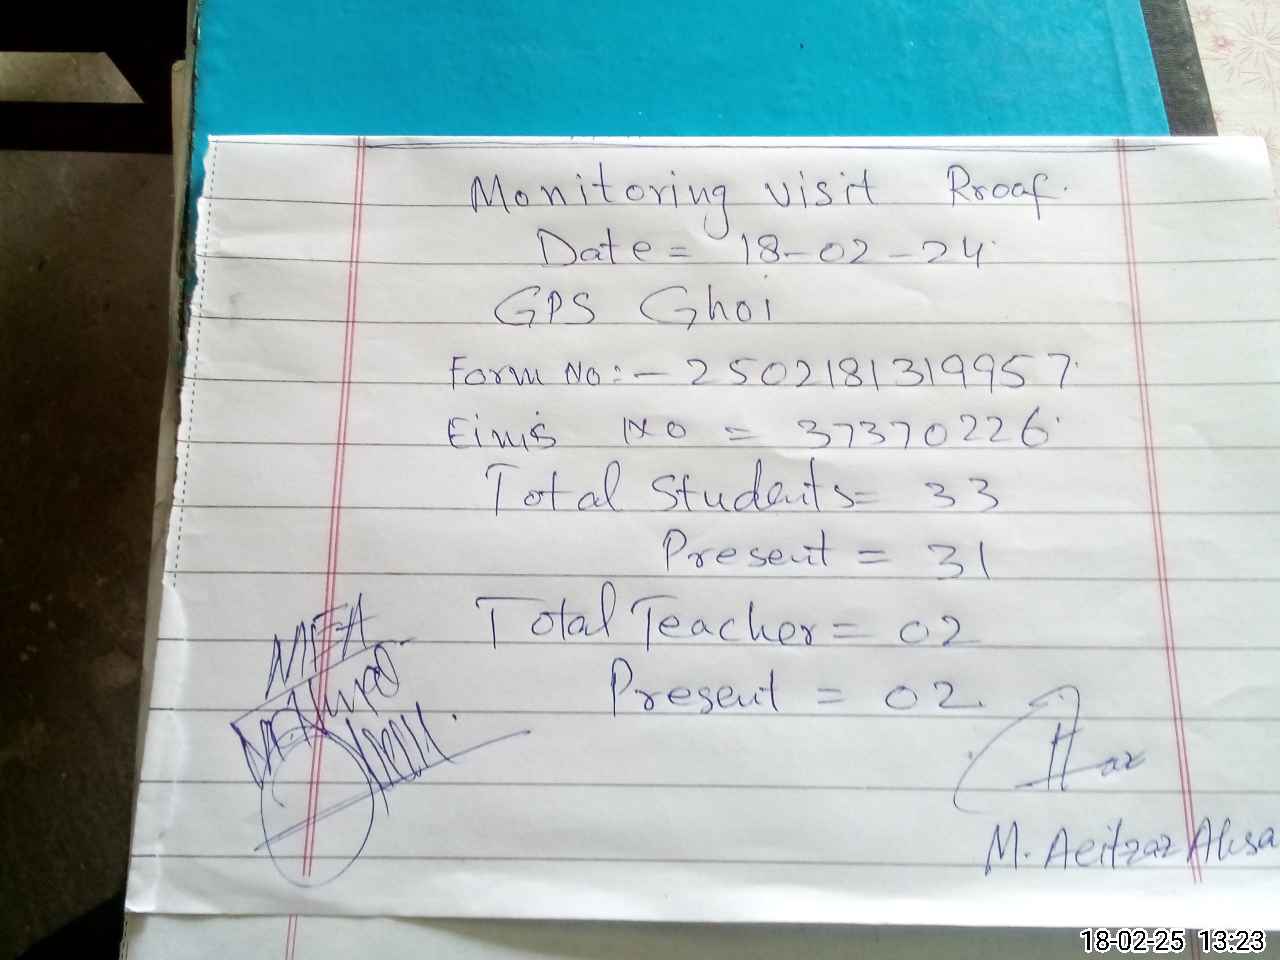 Monitoring visit Rroaf.
Date = 18-02-24.
GPS Ghoi
Form No:- 2502181319957.
Eims No = 37370226.
Total Students= 33
Present = 31
Total Teacher= 02
Present = 02.
MEA
M. Aeitzaz Ahsa
18-02-25 13:23